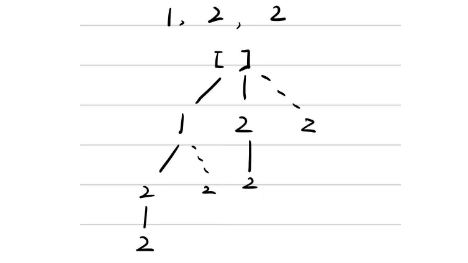 1, 2, 2
[ ]
1 2 2
2 2 2
2